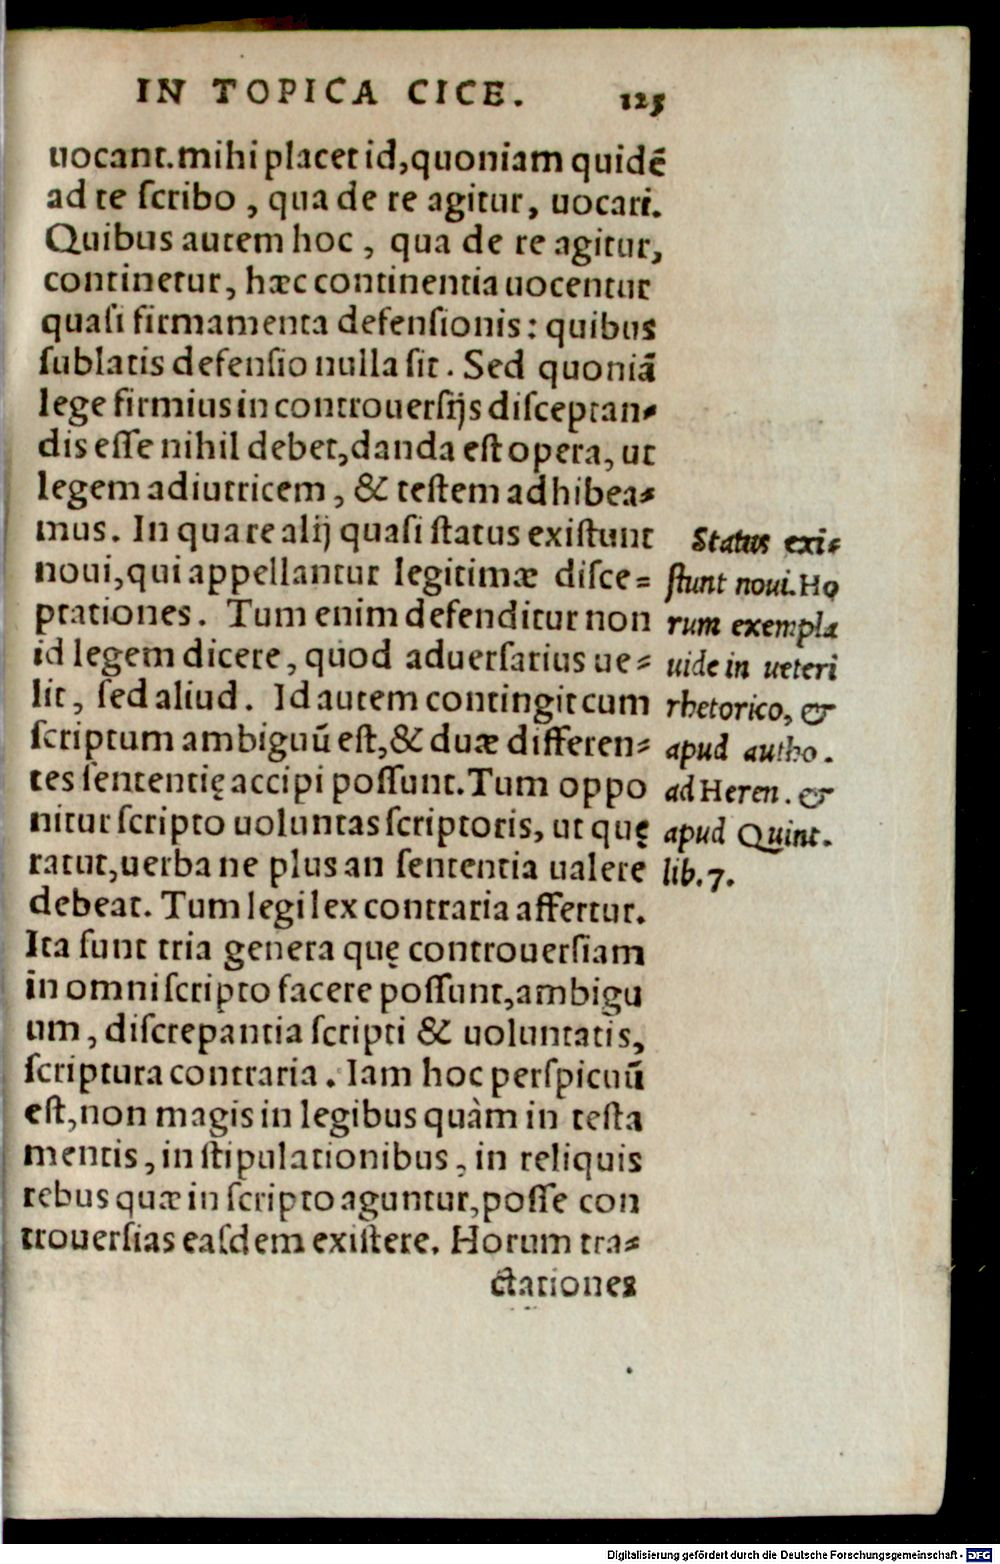 IN TOPICA CICE. 125
uocant. mihi placet id, quoniam quidē
ad te ſcribo, qua de re agitur, uocari.
Quibus autem hoc, qua de re agitur,
continetur, hæc continentia uocentur
quaſi firmamenta defenſionis: quibus
ſublatis defenſio nulla ſit. Sed quoniā
lege firmius in controuerſijs diſceptan-
dis eſſe nihil debet, danda eſt opera, ut
legem adiutricem, & teſtem adhibea-
mus. In qua re alij quaſi ſtatus exiſtunt
noui, qui appellantur legitimæ diſce-
ptationes. Tum enim defenditur non
id legem dicere, quod aduerſarius ue-
lit, ſed aliud. Id autem contingit cum
ſcriptum ambiguū eſt, & duæ differen-
tes ſententię accipi poſſunt. Tum oppo
nitur ſcripto uoluntas ſcriptoris, ut quę
ratur, uerba ne plus an ſententia ualere
debeat. Tum legi lex contraria affertur.
Ita ſunt tria genera quę controuerſiam
in omni ſcripto facere poſſunt, ambigu
um, diſcrepantia ſcripti & uoluntatis,
ſcriptura contraria. Iam hoc perſpicuū
eſt, non magis in legibus quàm in teſta
mentis, in ſtipulationibus, in reliquis
rebus quæ in ſcripto aguntur, poſſe con
trouerſias eaſdem exiſtere. Horum tra-
ctationes
Status exi-
ſtunt noui. Ho
rum exempla
uide in ueteri
rhetorico, &
apud autho.
ad Heren. &
apud Quint.
lib. 7.
Digitalisierung gefördert durch die Deutsche Forschungsgemeinschaft - DFG